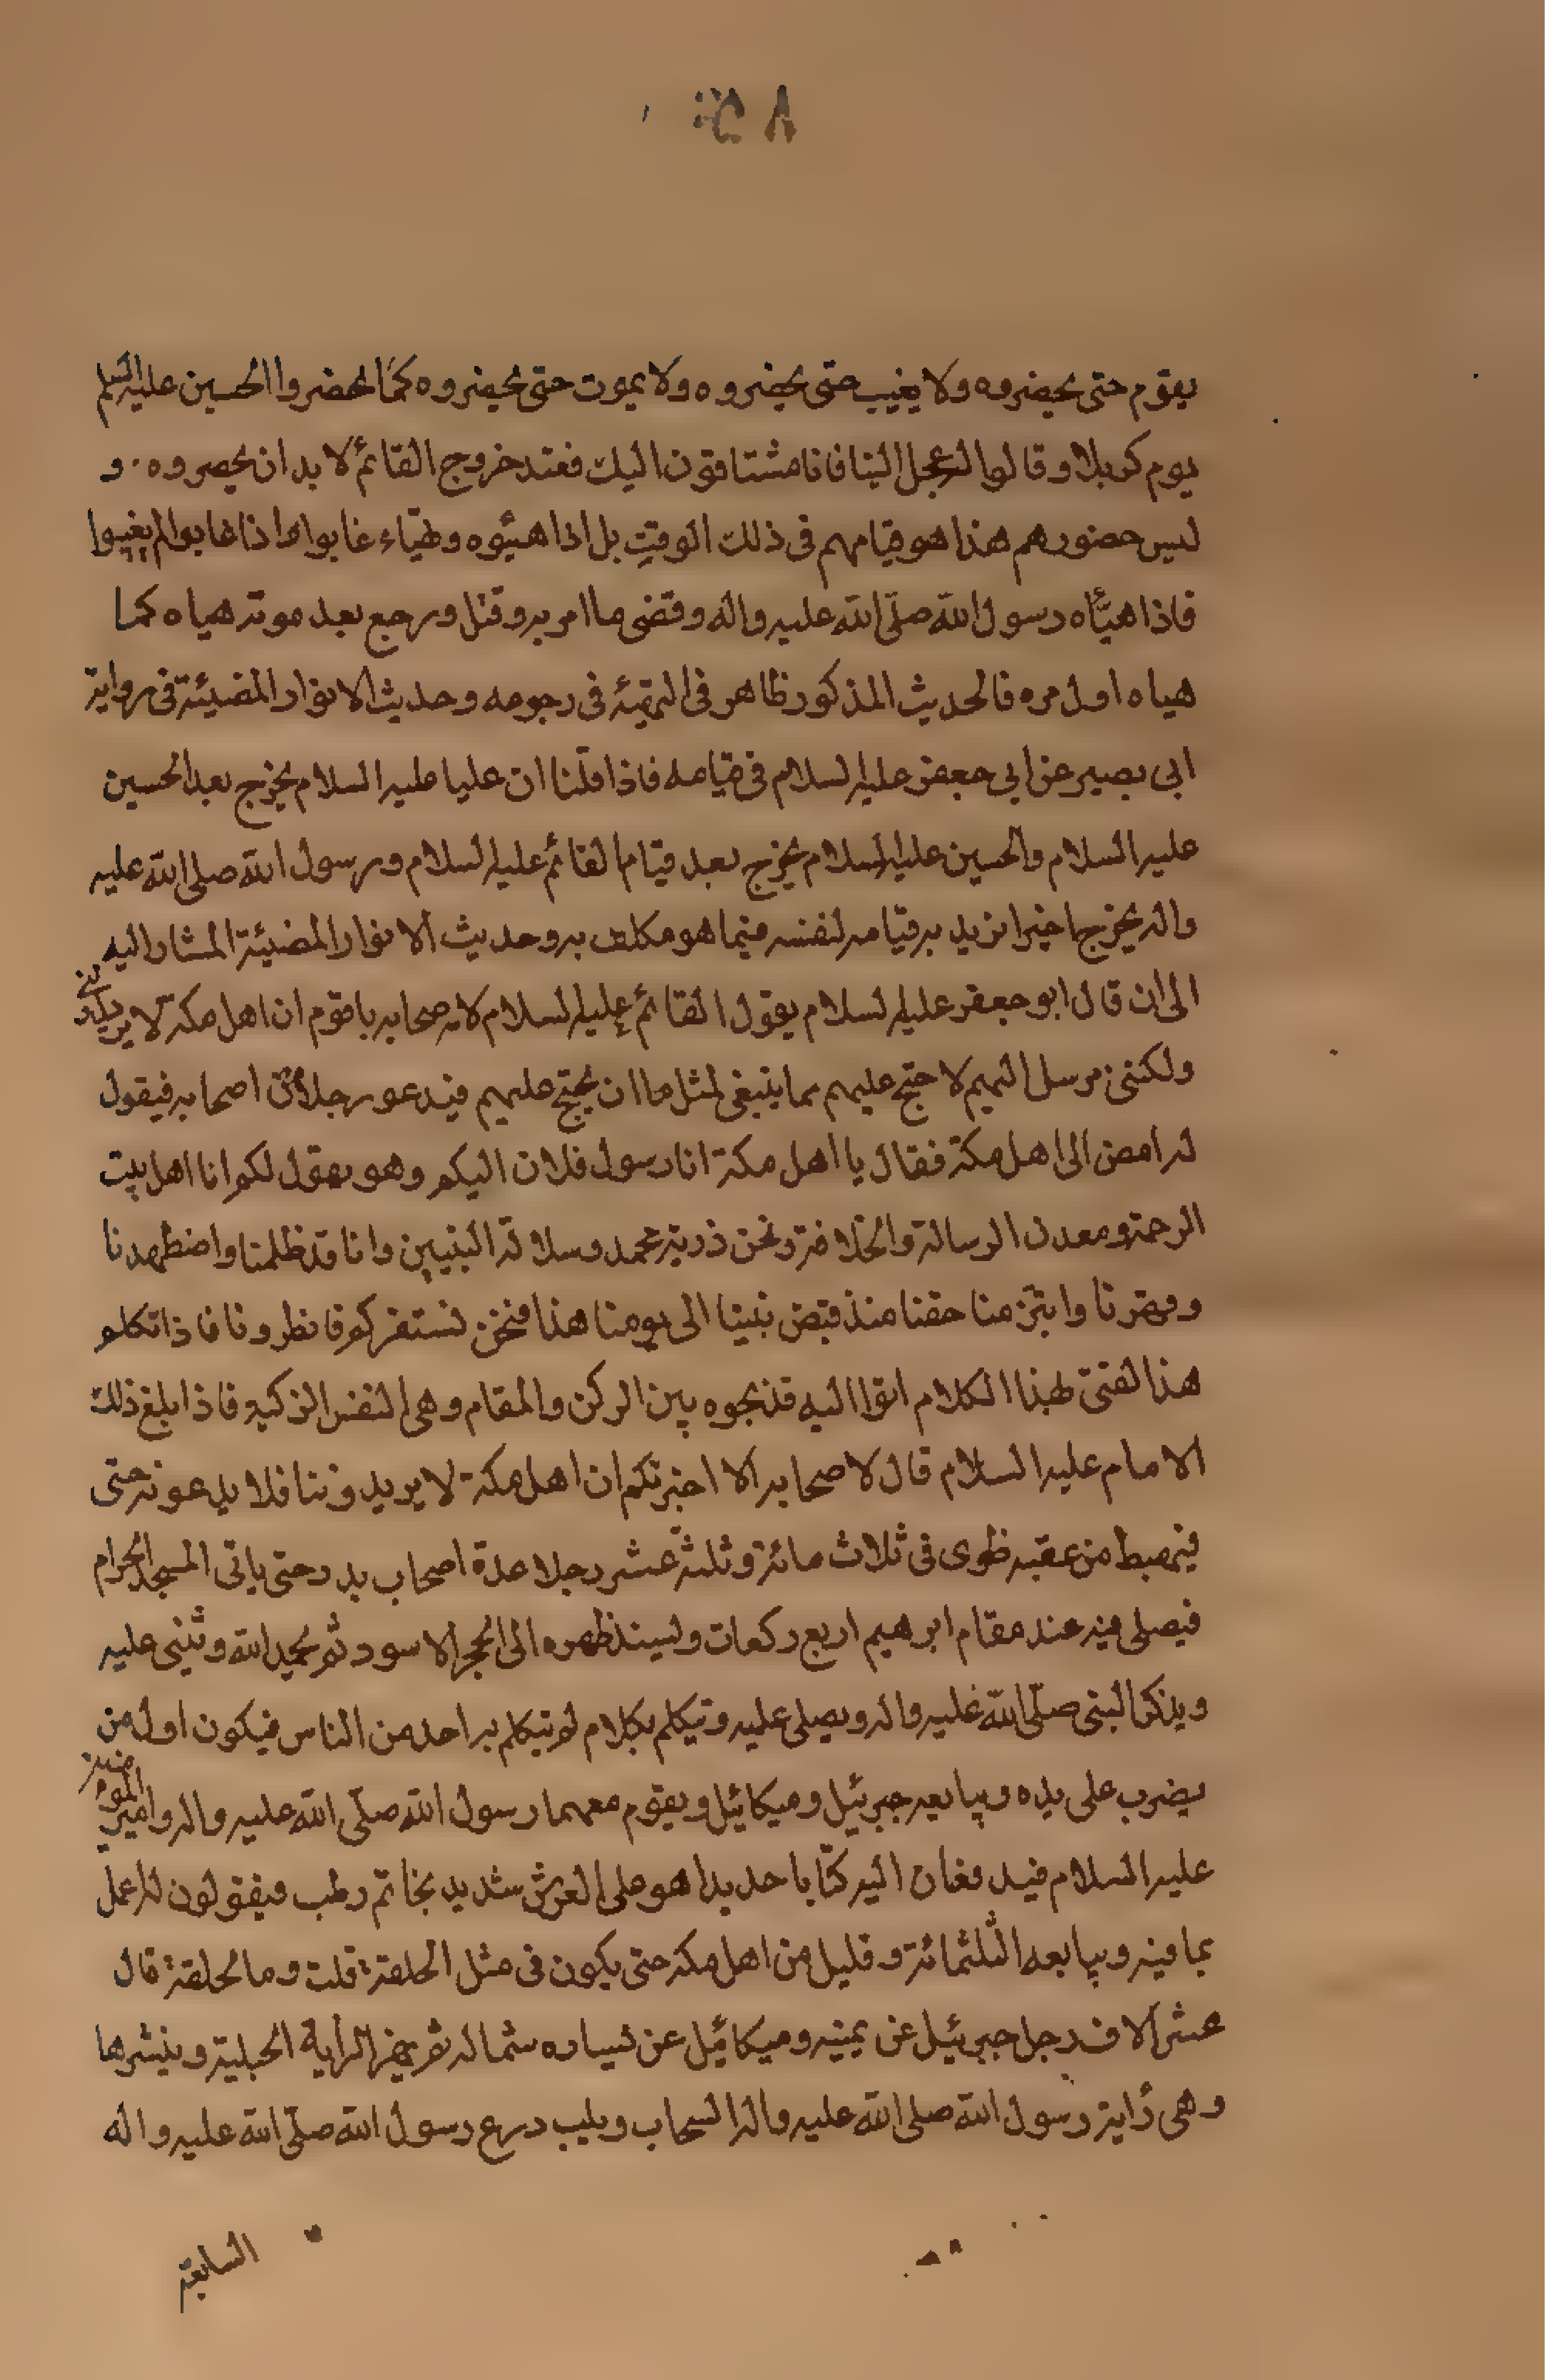 يقوم حتى يحضروه ولا يغيب حتى يحضروه ولا يموت حتى يحضروه كما يحضروا الحسين عليه السلم
يوم كربلا وقالوا له عجل الينا فانا مشتاقون اليك فعند خروج القائم لا بد ان يحصروه . و
ليس حضورهم هذا هو قيامهم فى ذلك الوقت بل اذا هيئوه وهيّاء غابوا ما ذا غابوا لم يغيبوا
فاذا هيّأه رسول الله صلّى الله عليه واله وقضى ما امر به وقتل ورجع بعد موته هياه كما
هياه اول مره فالحديث المذكور ظاهر فى التهيّة فى رجومه وحديث الانوار المضيئة فى رواية
ابى بصير عن ابى جعفر عليه السلام فى قيامه فاذا قلنا ان عليا عليه السلام يخرج بعد الحسين
عليه السلام والحسين عليه السلام يخرج بعد قيام القائم عليه السلام ورسول الله صلى الله عليه
واله يخرج اخيرا نريد به قيامه لنفسه فيما هو مكلف به وحديث الانوار المضيئة المشار اليه
الى ان قال ابو جعفر عليه السلام يقول القائم عليه السلام لاصحابه يا قوم ان اهل مكة لا يريدوننى
ولكننى مرسل اليهم لاحتج عليهم بما ينبغى لمثل ما ان يحتج عليهم فيدعو رجلا من اصحابه فيقول
له امض الى اهل مكة فقال يا اهل مكة انا رسول فلان اليكم وهو يقول لكم انا اهل بيت
الرحمة ومعدن الرسالة والخلافة ونحن ذرية محمد وسلالة النبيين وانا قد ظلمنا واضطهدنا
وقهرنا وابتز منا حقنا منذ قبض نبينا الى يومنا هذا فنحن نستفركم فانظرونا فاذا تكلم
هذا لفتى بهذا الكلام اتوا اليه فذبحوه بين الركن والمقام وهى النفس الزكية فاذا بلغ ذلك
الامام عليه السلام قال لاصحابه الا اخبرتكم ان اهل مكة لا يريدوننا فلا يدعونه حتى
فيهبط من عقبه طوى فى ثلاث مائة وثلثة عشر رجلا عدة اصحاب بدر حتى ياتى المسجد الحرام
فيصلى فيه عند مقام ابرهيم اربع ركعات وليسند ظهره الى الحجر الاسود ثم يحمد الله ويثنى عليه
ويذكر النبى صلّى الله عليه واله ويصلى عليه ويتكلم بكلام لم يتكلم به احد من الناس فيكون اول من
يضرب على يده ويبايعه جبرئيل وميكائيل ويقوم معهما رسول الله صلّى الله عليه واله وامير المومنين
عليه السلام فيدفعان اليه كتابا حديدا هو على العرش شديد بخاتم رطب فيقولون له اعمل
بما فيه ويبايعه الثلثمائة وقليل من اهل مكة حتى يكون فى مثل الحلقة قلت وما لحلقة قال
عشر الاف رجل جبرئيل عن يمينه وميكائيل عن يساره شماله ثم يهز الراية الجبلية وينشرها
وهى راية رسول الله صلى الله عليه واله السحاب ويلبس درع رسول الله صلّى الله عليه واله
السابغة